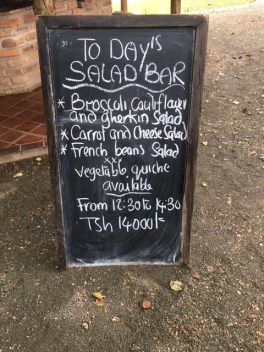 TO DAY'S
SALAD BAR
* Broccoli Cauliflower
and gherkin Salad
* Carrot and Cheese Salad
* French beans Salad
vegetable quiche
available
From 12:30 to 14:30
TSh 14000/=